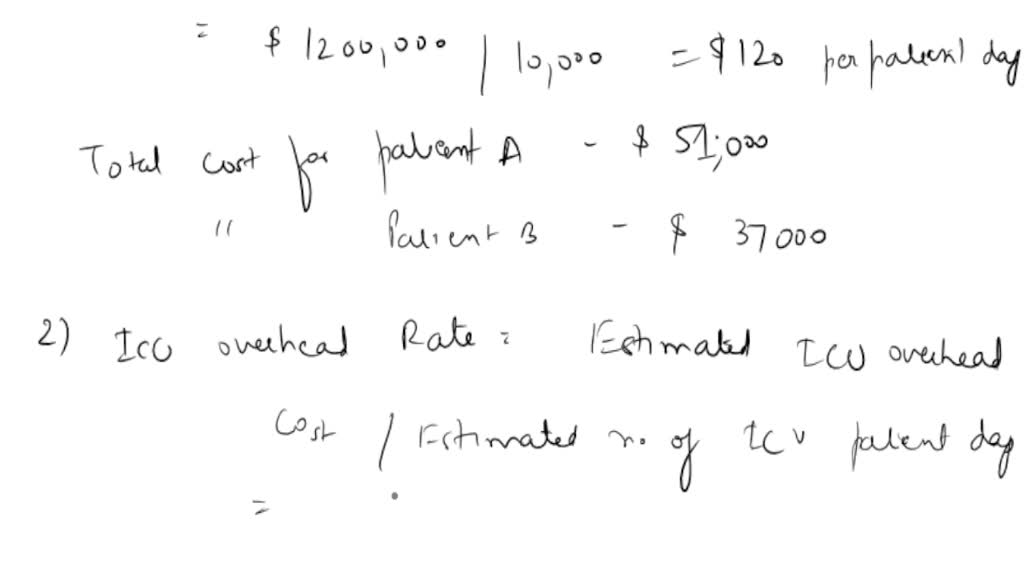 = $ 1200,000 / 10,000 = $ 120 per patient day
Total cost for patient A - $ 51,000
" Patient B - $ 37000
2) ICU overhead Rate = Estimated ICU overhead
Cost / Estimated no. of ICU patient day
=